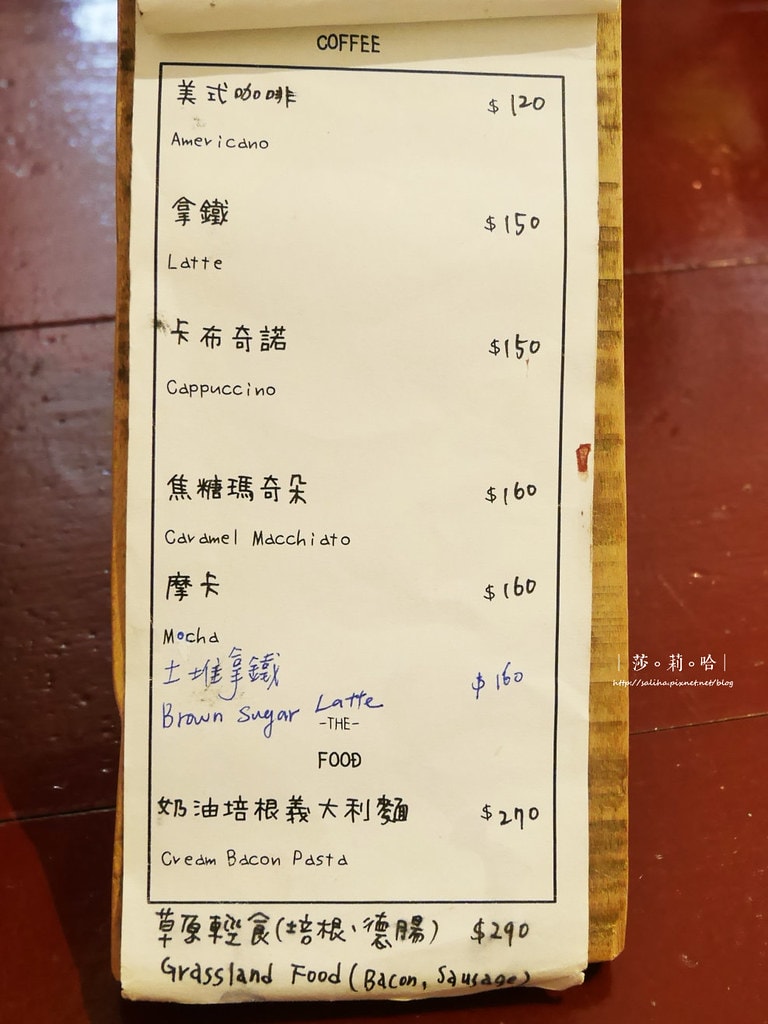 COFFEE
美式咖啡 $120
Americano
拿鐵 $150
Latte
卡布奇諾 $150
Cappuccino
焦糖瑪奇朵 $160
Caramel Macchiato
摩卡 $160
Mocha
土堆拿鐵 $160
Brown Sugar Latte
-THE-
FOOD
奶油培根義大利麵 $270
Cream Bacon Pasta
草原輕食(培根、德腸) $290
Grassland Food (Bacon, Sausage)
|莎。莉。哈|
http://saliha.pixnet.net/blog